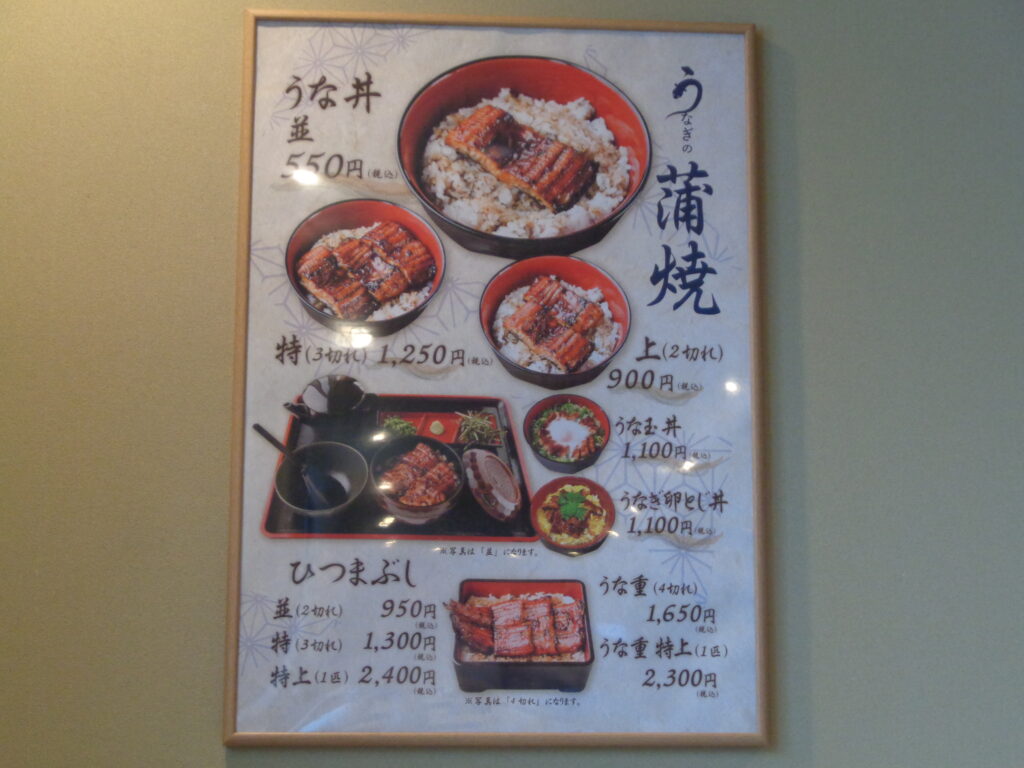 うなぎの
蒲焼
うな丼
並
550円(税込)
特(3切れ) 1,250円(税込)
上(2切れ)
900円(税込)
うな玉丼
1,100円(税込)
うなぎ卵とじ丼
1,100円(税込)
※写真は「並」になります。
ひつまぶし
並(2切れ) 950円
(税込)
特(3切れ) 1,300円
(税込)
特上(1匹) 2,400円
(税込)
うな重(4切れ)
1,650円
(税込)
うな重 特上(1匹)
2,300円
(税込)
※写真は「4切れ」になります。